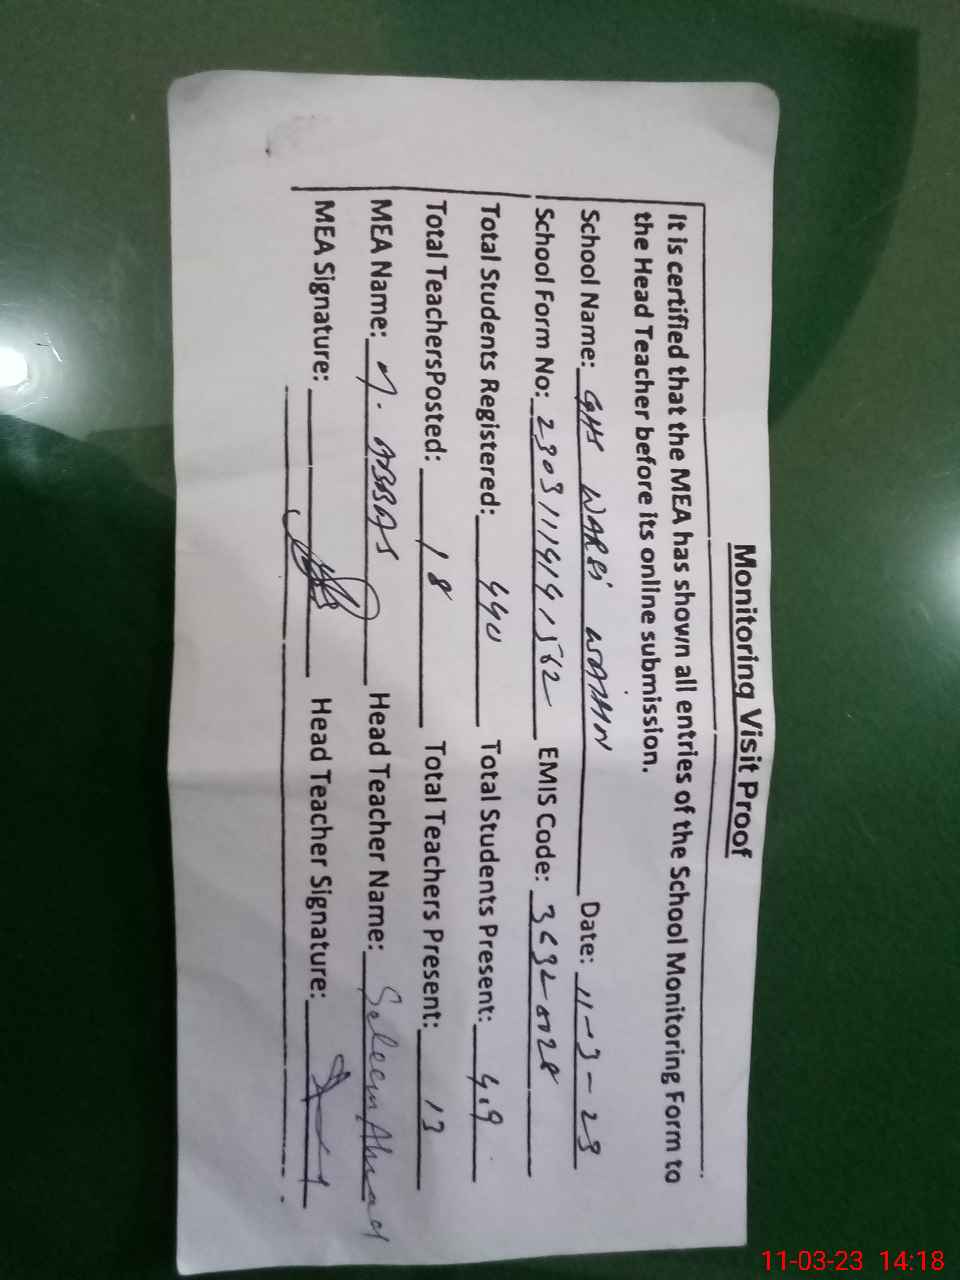 Monitoring Visit Proof
It is certified that the MEA has shown all entries of the School Monitoring Form to
the Head Teacher before its online submission.
School Name: GHS WARBI WATHN Date: 11-3-23
School Form No: 23031114141562 EMIS Code:
Total Students Registered: 440 Total Students Present: 409
Total TeachersPosted: 18 Total Teachers Present: 13
MEA Name: M. ABBAS Head Teacher Name: Saleem Ahmad
MEA Signature: Head Teacher Signature:
11-03-23 14:18